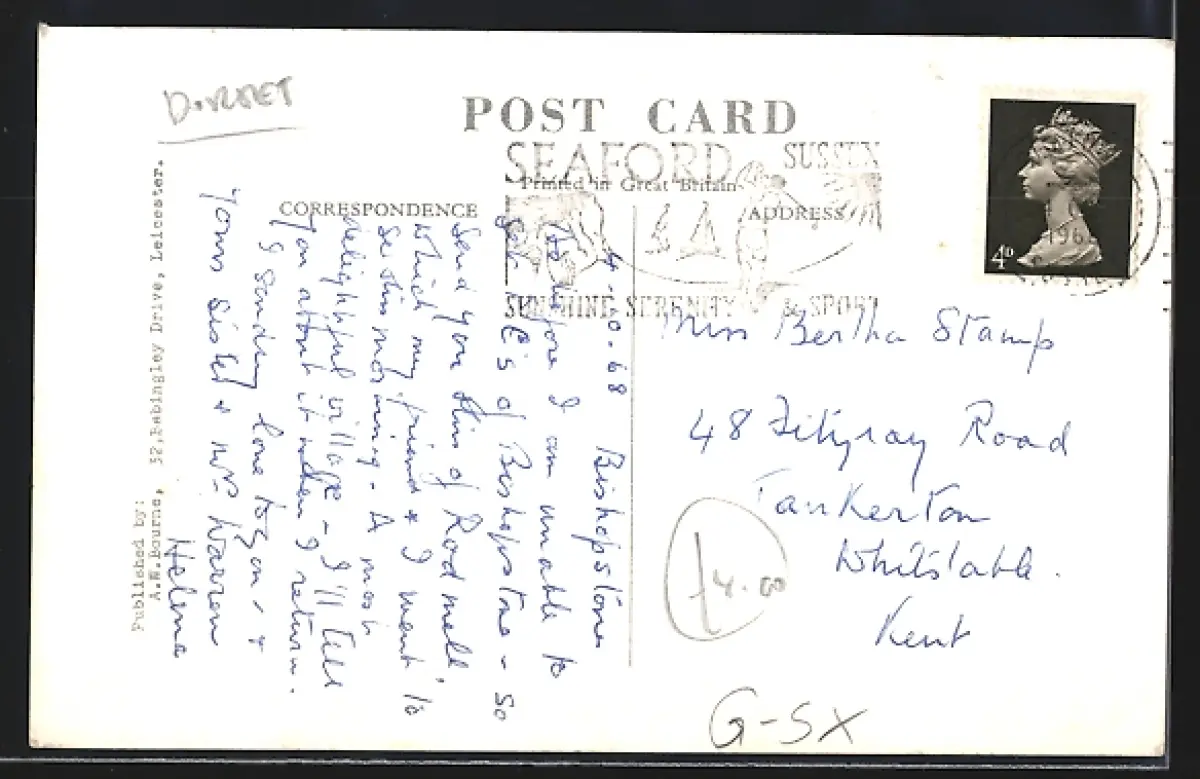 DORSET
POST CARD
SEAFORD SUSSEX
Printed in Great Britain
CORRESPONDENCE
ADDRESS
SUNSHINE SERENITY & SPORT
196
4D
Published by:
A.W.Bourne, 52,Babingley Drive, Leicester.
4-10.68 Bishopstone
As before I am unable to
get P.C's of Bishopstone - so
send you this of Rodmell,
which my friend & I went to
see this morning - A most
delightful village - I'll tell
you about it when I return.
I sending love to you, &
Your Sister & Mr Warren
Helena
Miss Bertha Stamp
48 Fitzroy Road
Tankerton
Whitstable.
Kent
£4.00
G-SX